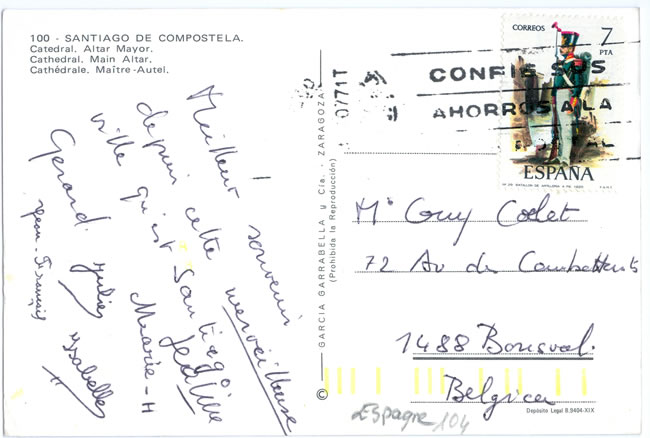 100 - SANTIAGO DE COMPOSTELA.
Catedral. Altar Mayor.
Cathedral. Main Altar.
Cathédrale. Maître-Autel.
Meilleur souvenir
depuis cette merveilleuse
ville qu'est Santiago
Marie-H
Gerard Julien
Jean-François Ysabelle
GARCIA GARRABELLA y Cía. - ZARAGOZA
(Prohibida la Reproducción)
0771T
CORREOS 7
PTA
CONFIE SUS
AHORROS A LA
POSTAL
ESPAÑA
Mr Guy Collet
72 Av des Combattants
1488 Bousval.
Belgica
©
Depósito Legal B.9404-XIX
Espagne 104